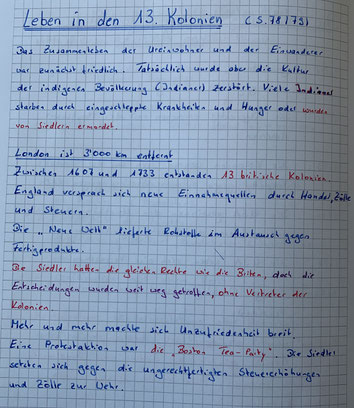 Leben in den 13. Kolonien (S.78/79)
Das Zusammenleben der Ureinwohner und der Einwanderer
war zunächst friedlich. Tatsächlich wurde aber die Kultur
der indigenen Bevölkerung (Indianer) zerstört. Viele Indianer
starben durch eingeschleppte Krankheiten und Hunger oder wurden
von Siedlern ermordet.
London ist 3'000 km entfernt
Zwischen 1607 und 1733 entstanden 13 britische Kolonien.
England versprach sich neue Einnahmequellen durch Handel, Zölle
und Steuern.
Die „Neue Welt" lieferte Rohstoffe im Austausch gegen
Fertigprodukte.
Die Siedler hatten die gleichen Rechte wie die Briten, doch die
Entscheidungen wurden weit weg getroffen, ohne Vertreter der
Kolonien.
Mehr und mehr machte sich Unzufriedenheit breit.
Eine Protestaktion war die „Boston Tea-Party". Die Siedler
setzten sich gegen die ungerechtfertigten Steuererhöhungen
und Zölle zur Wehr.